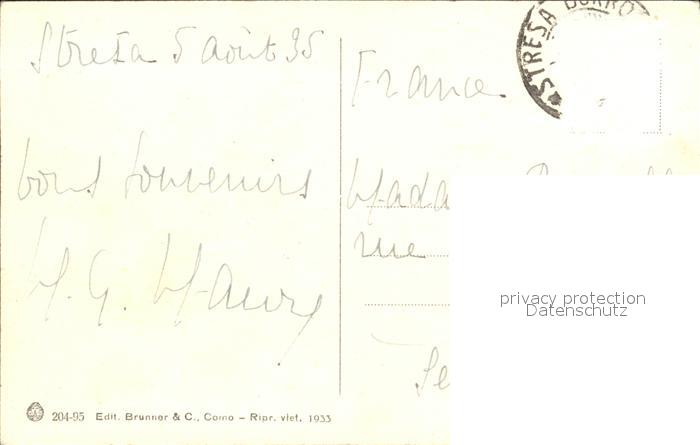 Stresa 5 août 35
bons souvenirs
204-95 Edit. Brunner & C., Como – Ripr. viet. 1933
STRESA BORRO
France
rue
privacy protection
Datenschutz